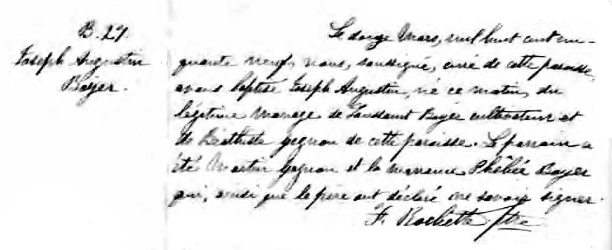 B. 27.
Joseph Augustin
Boyer.
Le douze Mars, mil huit cent cin-
quante neuf, nous, soussigné, curé de cette paroisse,
avons baptisé Joseph Augustin, né ce matin, du
légitime mariage de Toussaint Boyer cultivateur et
de Bathilde Gagnon de cette paroisse. Le parrain a
été Martin Gagnon et la marraine Boyer
qui, ainsi que le père ont déclaré ne savoir signer.
F. Rochette Ptre